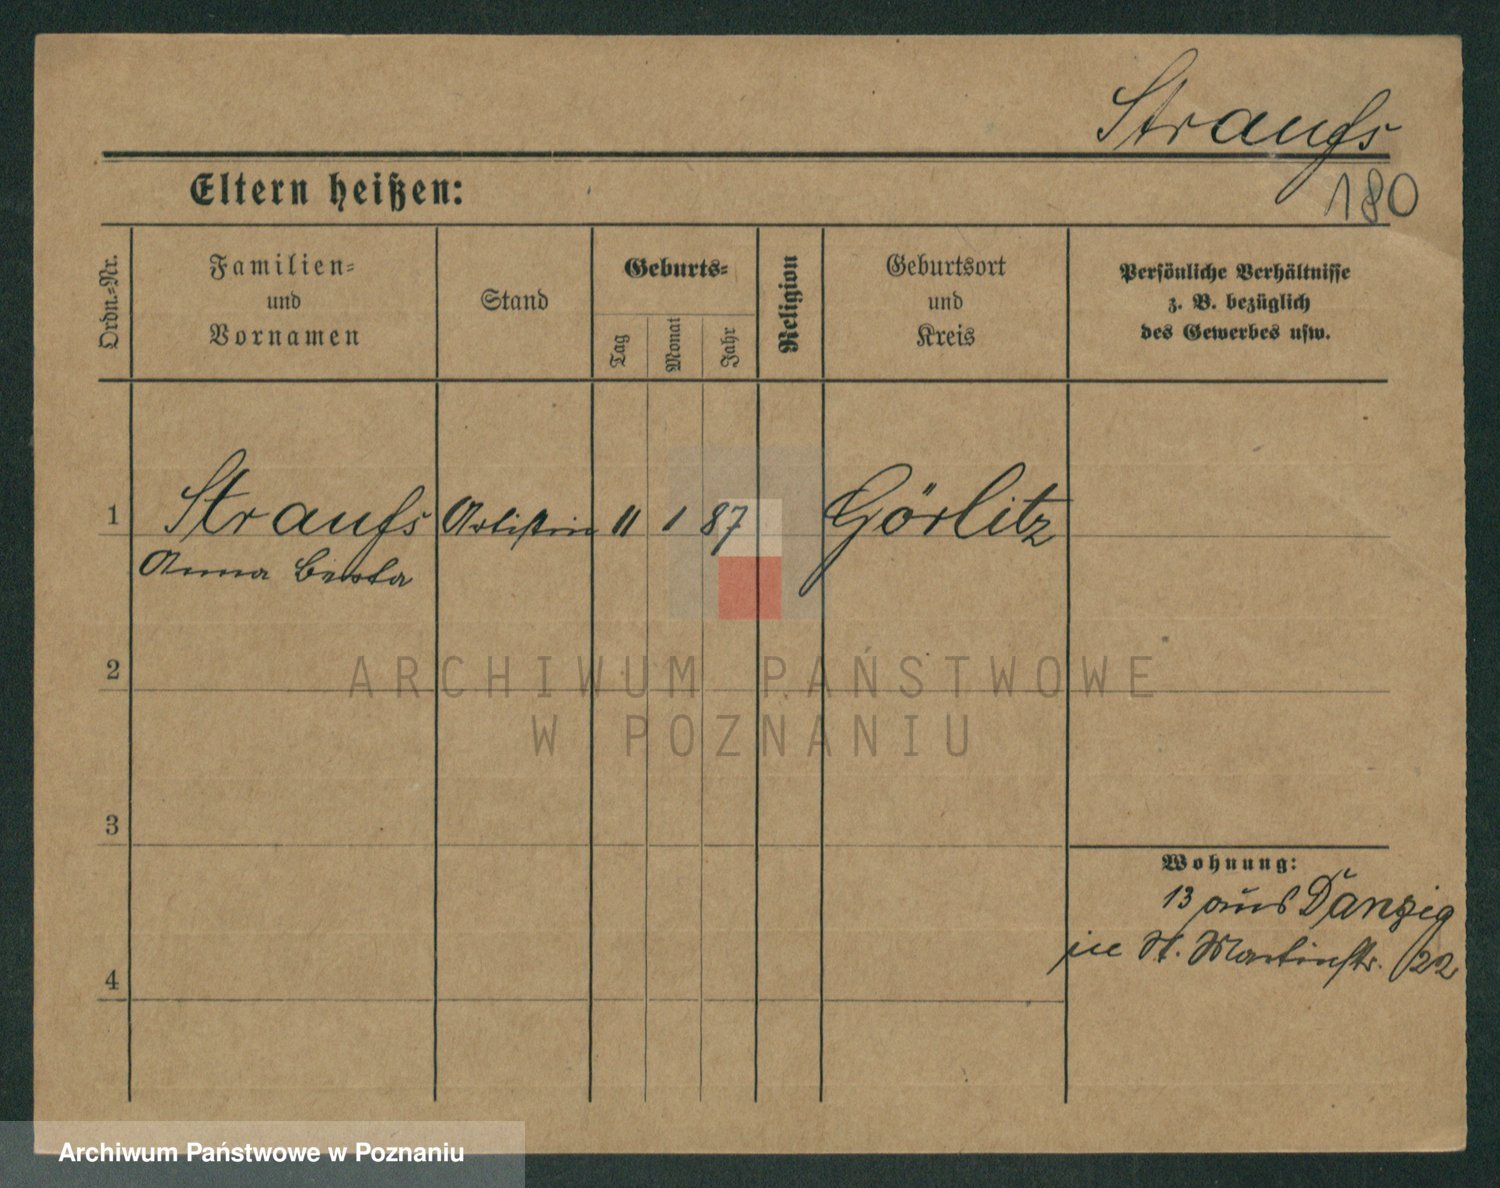 Straufs
180
Eltern heißen:
Ordn.-Nr.
Familien-
und
Vornamen
Stand
Geburts-
Tag
Monat
Jahr
Religion
Geburtsort
und
Kreis
Persönliche Verhältnisse
z. B. bezüglich
des Gewerbes usw.
1 Straufs Artistin 11 1 87 Görlitz
Anna
2
3
4
Wohnung:
13 aus Danzig
St. Martinstr. 22
ARCHIWUM PAŃSTWOWE
W POZNANIU
Archiwum Państwowe w Poznaniu